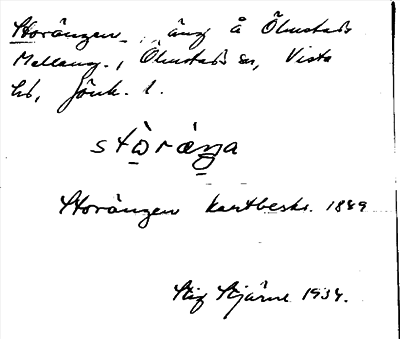 Storängen, äng å Ölmstads
Mellang., Ölmstads sn, Vista
hd, Jönk. l.
stòràŋa
Storängen kartbeskr. 1889
Stig Stjärne 1934.